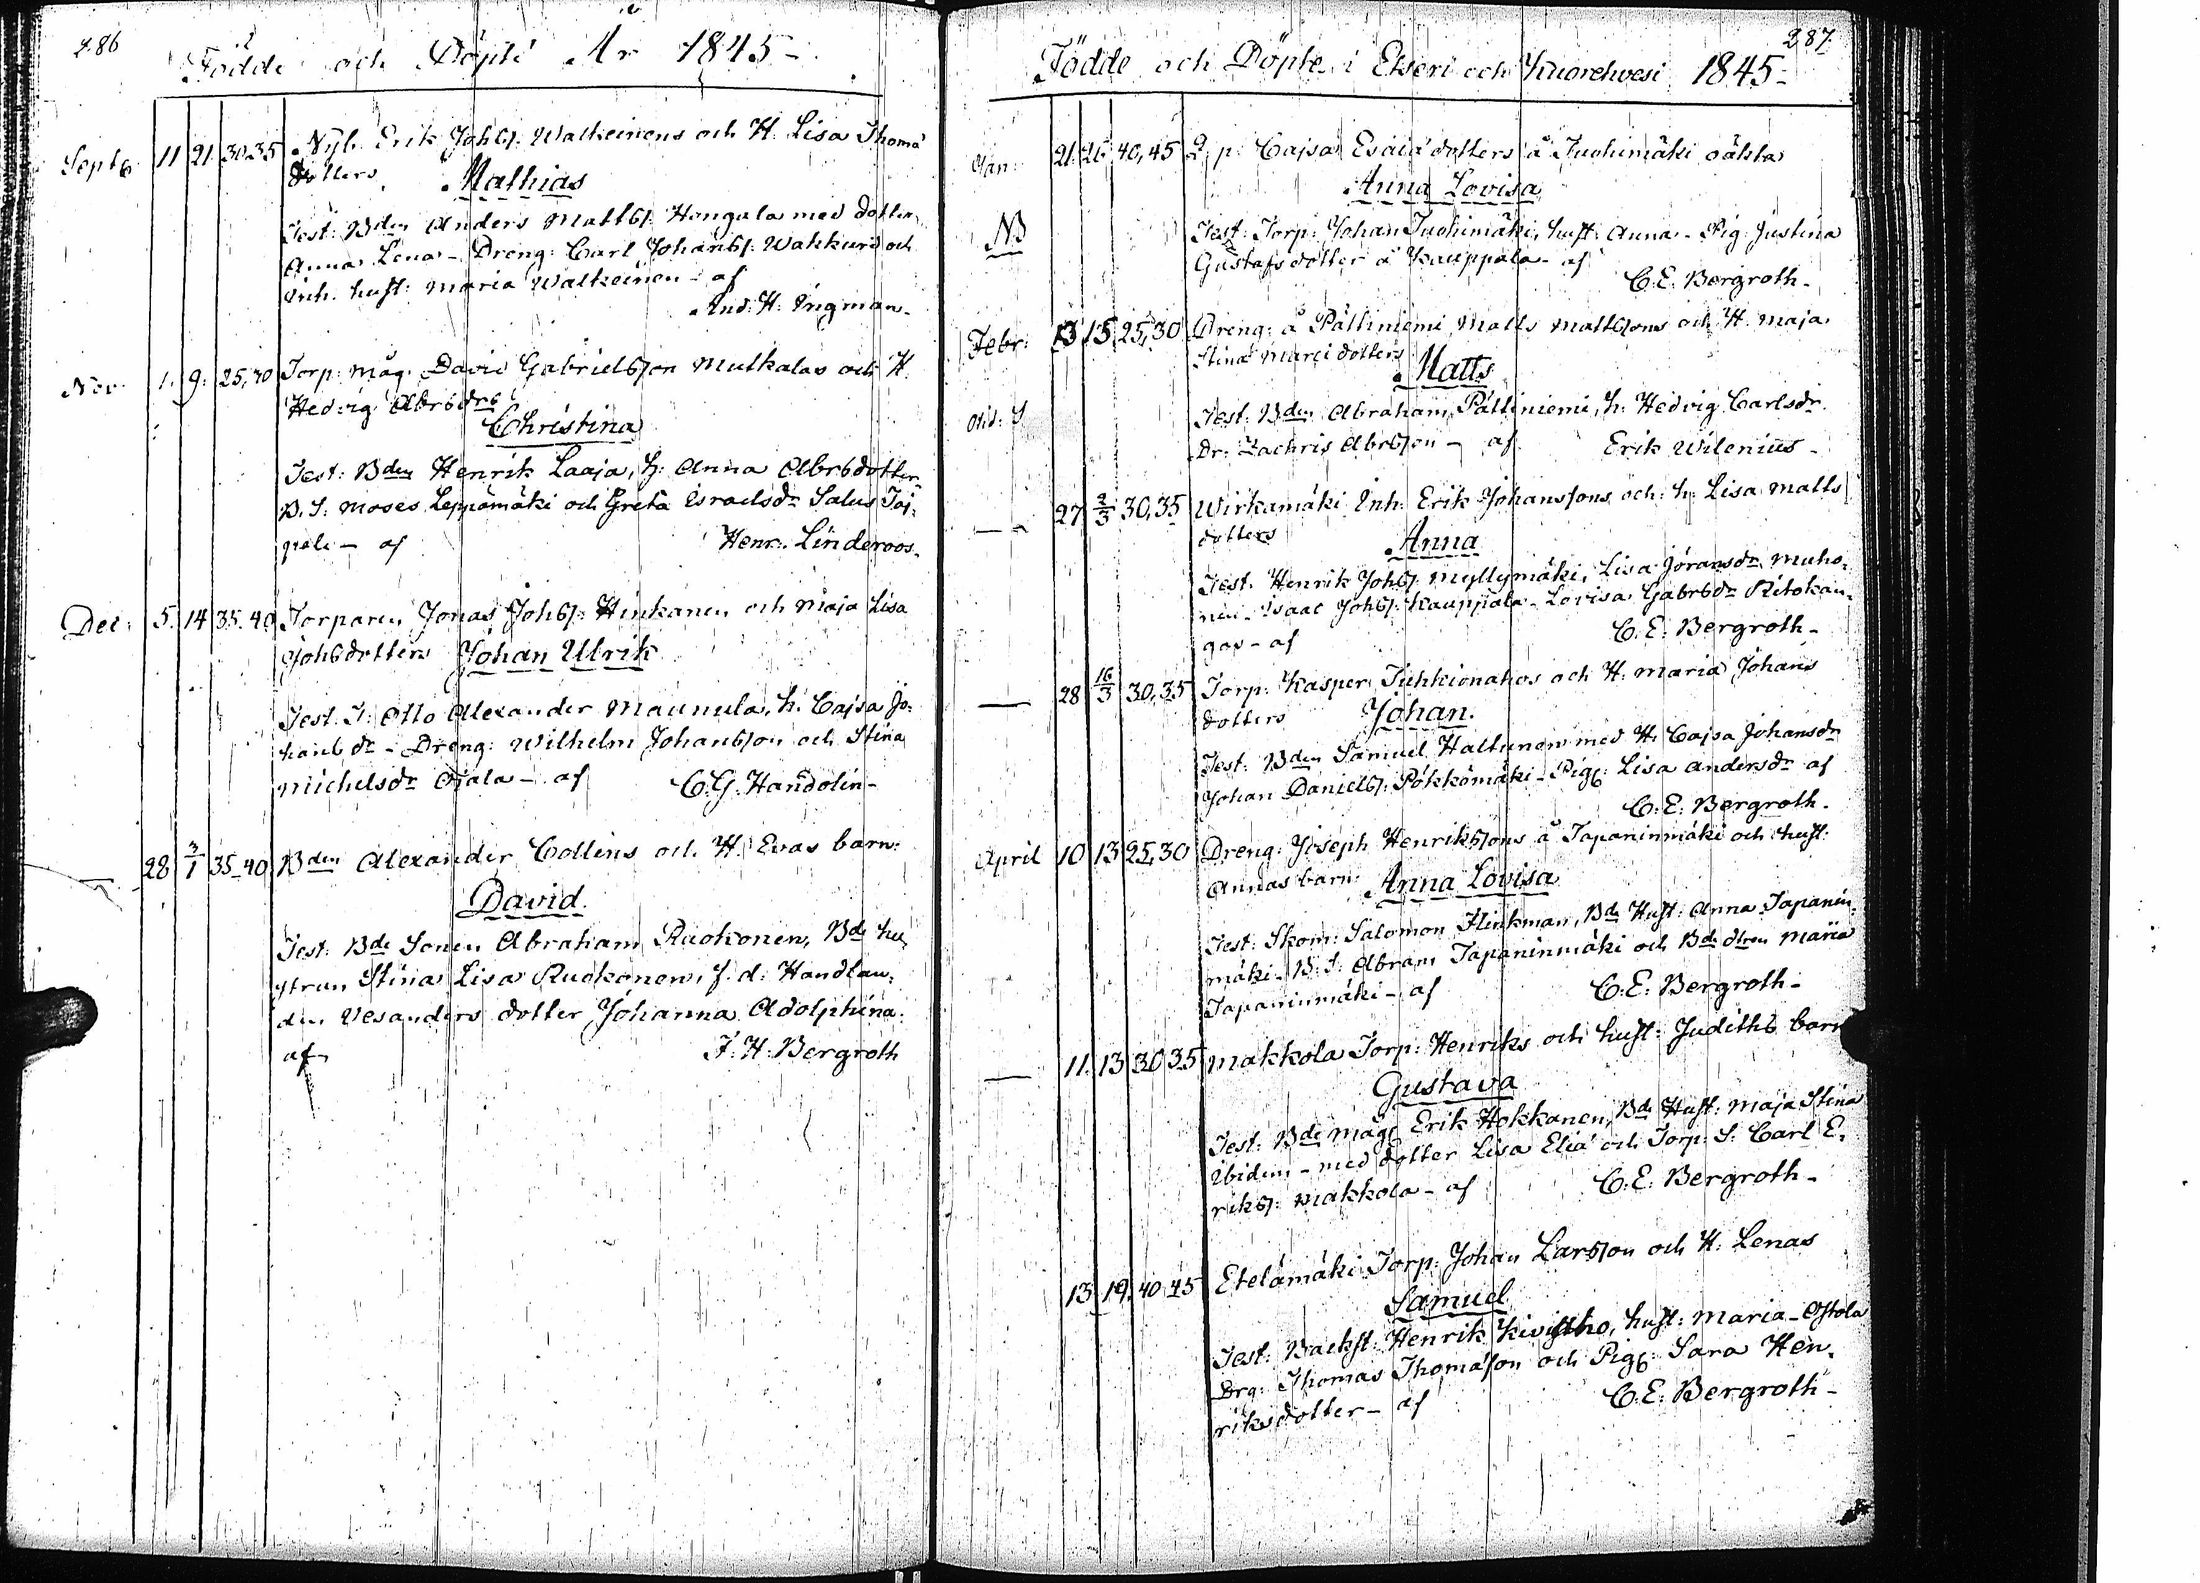 286
Födde och Döpte År 1845 -
Septb. 11 21 30.35 Nyb. Erik Johsſ. Walkeinens och H. Lisa Thomä
dotters Mathias
Test: Bden Anders Mattsſ. Hongala med dotter
Anna Lena - Dreng: Carl Johansſ. Wakkuri och
Inh. hust: Maria Walkeinen - af
And: H. Ingman -
Nov. 1. 9. 25,30 Torp: måg. David Gabrielsſon Mutkalas och H.
Hedvig Abrsdrs
Christina
Test: Bden Henrik Laaja, H: Anna Abrsdotter
B. S: Moses Leppämäki och Greta Israelsdr Salus
- af Henr: Linderoos.
Dec: 5. 14 35.40 Torparen Jonas Johsſ. Hinkanen och Maja Lisa
Johsdotters Johan Ulrik
Test. T: Otto Alexander Maunula, h. Cajsa Jo-
hansdr - Dreng: Wilhelm Johansſon och Stina
Michelsdr Ojala - af C. G. Handolin -
— 28 3/1 35-40 Bden Alexander Collins och H. Evas barn:
David.
Test: Bde Sonen Abraham Ruokonen, Bde hu-
strun Stina Lisa Ruokonen, f. d: Handlan-
den Vesanders dotter Johanna Adolphina.
af F. H. Bergroth
287.
Födde och Döpte i Etseri och Kuorehvesi 1845 -
Jan: 21. 26 40,45 Q. p: Cajsa Esaiä dotters å Tuohimäki oäkta
Anna Lovisa
NB Test: Torp: Johan Tuohimäki, hust: Anna - Pig: Justina
Gustafsdotter å Kauppala - af
C. E. Bergroth -
Febr: 13 15 25,30 Dreng: å Pältiniemi Matts Mattsſons och H. Maja
Stina Marci dotters
Matts
Test: Bden Abraham Pältiniemi, h: Hedvig Carlsdr
Dr: Zachris Abrsſon - af Erik Wilenius -
— 27 2/3 30,35 Wirkamäki Inh: Erik Johansſons och h: Lisa Matts
dotters Anna
Test. Henrik Johsſ. Myllymäki, Lisa Jöransdr Muho-
nen - Isaac Johsſ: Kauppala - Lovisa Gabrsdr Ritokan-
gas - af C. E. Bergroth -
— 28 16/3 30,35 Torp: Kasper Tuhkionahos och H: Maria Johans
dotters Johan.
Test: Bden Samuel Haltunen med H. Cajsa Johansdr
Johan Danielsſ. Pökkömäki - Pig: Lisa Andersdr af
C. E. Bergroth.
April 10 13 25,30 Dreng: Joseph Henriksſons å Tapaninmäki och hust:
Annas barn: Anna Lovisa
Test: Skom: Salomon Flinkman, Bde Hust: Anna Tapanin-
mäki - B. S: Abram Tapaninmäki och Bde dtren Maria
Tapaninmäki - af C. E. Bergroth -
— 11. 13 30 35 Makkola Torp: Henriks och hust: Judiths barn
Gustava
Test: Bde måg Erik Hokkanen, Bde Hust: Maja Stina
ibidem - med dotter Lisa Eliä och Torp: S: Carl E-
riksſ: Makkola - af C. E. Bergroth -
13 19. 40 45 Etelämäki Torp: Johan Larsſon och H. Lenas
Samuel
Test: Backst: Henrik Kivistho, hust: Maria - Ostola
Drg: Thomas Thomäson och Pig: Sara Hen-
riksdotter - af C. E. Bergroth -